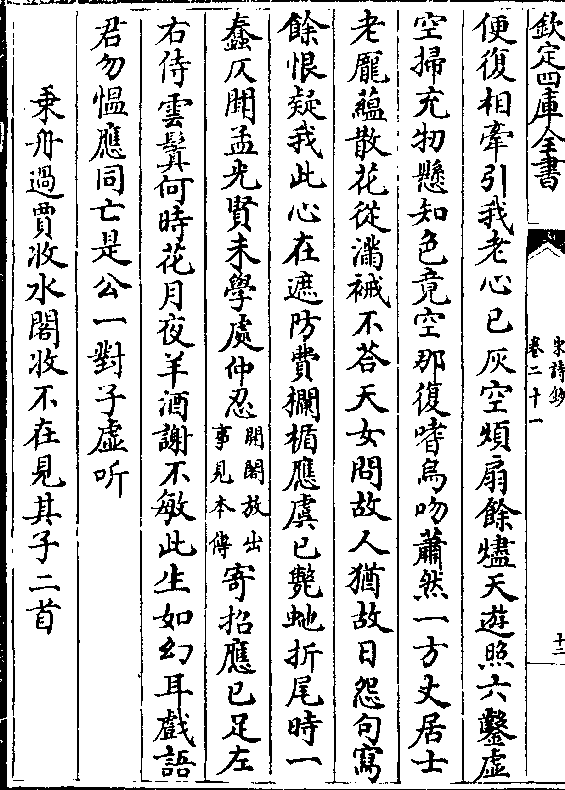 欽定四庫全書
宋詩鈔
卷二十一
十二
便復相牽引我老心已灰空煩扇餘燼天遊照六鑿虛
空掃充牣懸知色竟空那復嗜烏吻蕭然一方丈居士
老龎蘊散花從滿裓不荅天女問故人猶故日怨句寫
餘恨疑我此心在遮防費欄楯應虞已斃虵折尾時一
蠢仄聞孟光賢未學處仲忍
開閤放出
事見本傳
寄招應已足左
右侍雲鬒何時花月夜羊酒謝不敏此生如幻耳戲語
君勿愠應同亡是公一對子虛听
乘舟過賈收水閣收不在見其子二首